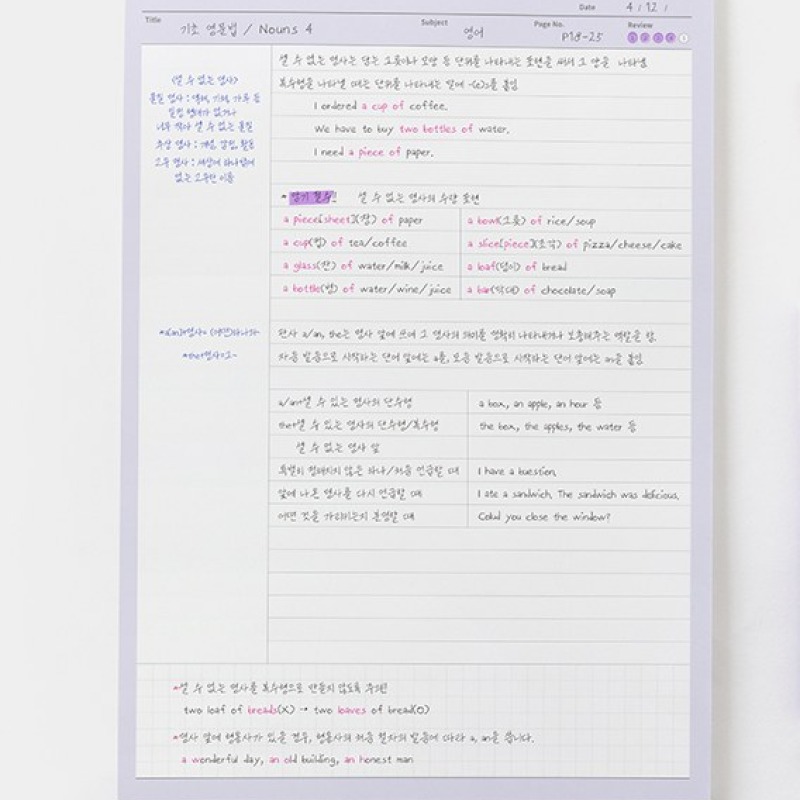 Date 4 / 12 /
Title 기초 영문법 / Nouns 4 Subject 영어 Page No. P18-25 Review 1 2 3 4 5
셀 수 없는 명사는 담는 그릇이나 모양 등 단위를 나타내는 표현을 써서 그 양을 나타냄
복수형을 나타낼 때는 단위를 나타내는 말에 -(e)s를 붙임
I ordered a cup of coffee.
We have to buy two bottles of water.
I need a piece of paper.
<셀 수 없는 명사>
물질 명사 : 액체, 기체, 가루 등
일정 형태가 없거나
너무 작아 셀 수 없는 물질
추상 명사 : 개념, 감정, 활동
고유 명사 : 세상에 하나밖에
없는 고유한 이름
* 암기 필수! 셀 수 없는 명사의 수량 표현
a piece[sheet](장) of paper a bowl(그릇) of rice/soup
a cup(컵) of tea/coffee a slice[piece](조각) of pizza/cheese/cake
a glass(잔) of water/milk/juice a loaf(덩이) of bread
a bottle(병) of water/wine/juice a bar(막대) of chocolate/soap
*a[an]+명사= (어떤)하나의~
*the+명사=그~
관사 a/an, the는 명사 앞에 쓰여 그 명사의 의미를 명확히 나타내거나 보충해주는 역할을 함.
자음 발음으로 시작하는 단어 앞에는 a를, 모음 발음으로 시작하는 단어 앞에는 an을 붙임
a/an+셀 수 있는 명사의 단수형 a box, an apple, an hour 등
the+셀 수 있는 명사의 단수형/복수형 the box, the apples, the water 등
셀 수 없는 명사 앞
특별히 정해지지 않은 하나/처음 언급할 때 I have a question.
앞에 나온 명사를 다시 언급할 때 I ate a sandwich. The sandwich was delicious.
어떤 것을 가리키는지 분명할 때 Colud you close the window?
*셀 수 없는 명사를 복수형으로 만들지 않도록 주의!
two loaf of breads(X) → two loaves of bread(O)
*명사 앞에 형용사가 있을 경우, 형용사의 처음 철자의 발음에 따라 a, an을 씁니다.
a wonderful day, an old building, an honest man